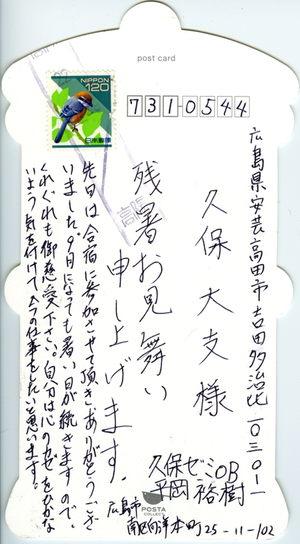 post card
NIPPON
120
日本郵便
731-0544
広島県安芸高田市吉田多治比一〇三〇-一
久保大支様
残暑お見舞い
申し上げます。
先日は合宿に参加させて頂きありがとうござ
いました。9月になっても暑い日が続きますので、
くれぐれも御慈愛下さい。自分は心のカゼをひかな
いよう気を付けて、今の仕事をしたいと思います。
久保ゼミOB
平岡裕樹
広島市
南区向洋本町25-11-102
POSTA
COLLECT